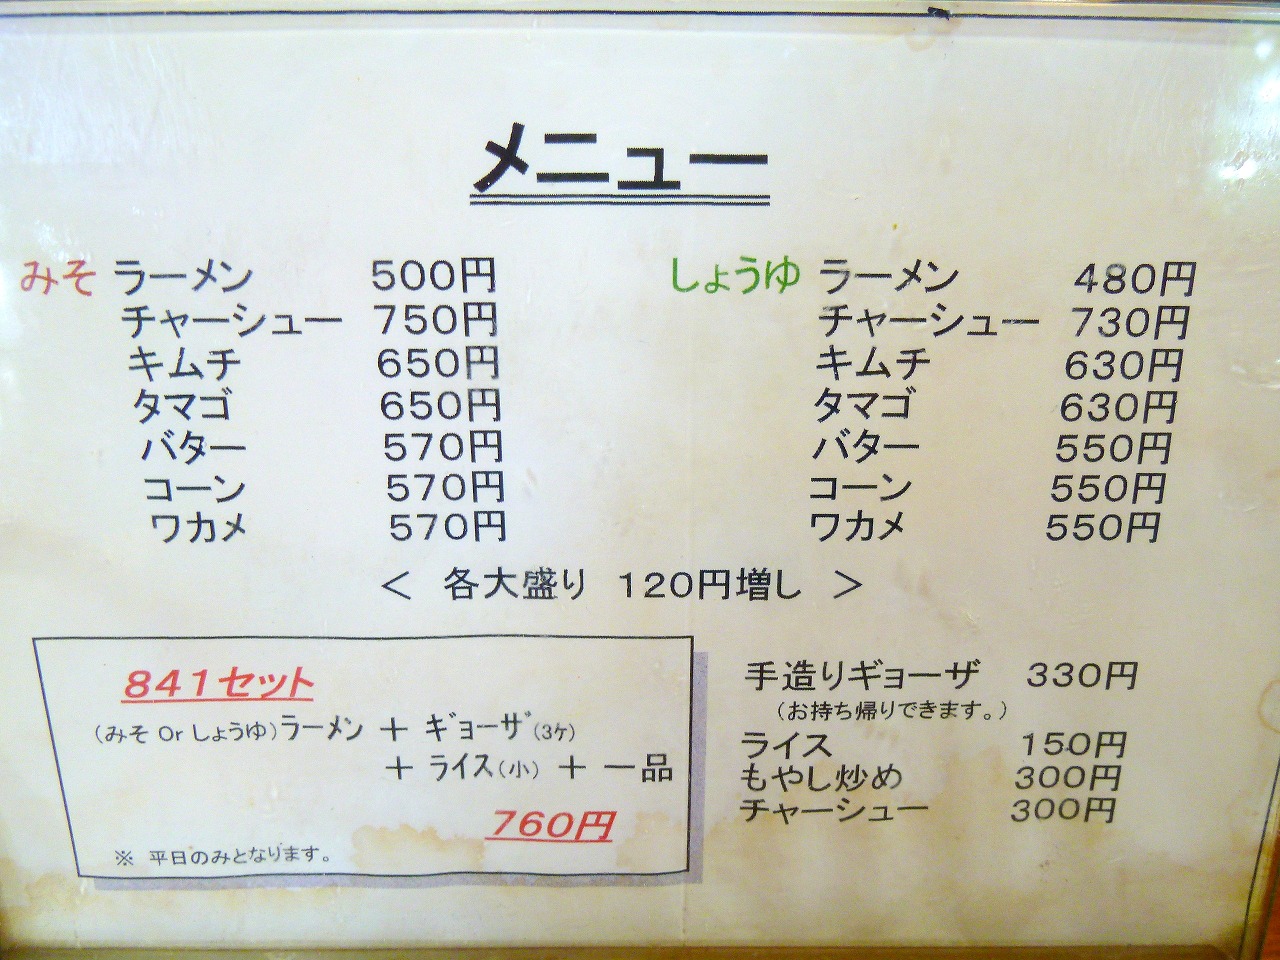 メニュー
みそ ラーメン 500円
チャーシュー 750円
キムチ 650円
タマゴ 650円
バター 570円
コーン 570円
ワカメ 570円
しょうゆ ラーメン 480円
チャーシュー 730円
キムチ 630円
タマゴ 630円
バター 550円
コーン 550円
ワカメ 550円
＜ 各大盛り 120円増し ＞
841セット
(みそ Or しょうゆ)ラーメン ＋ ギョーザ(3ケ)
＋ ライス(小) ＋ 一品
760円
※ 平日のみとなります。
手造りギョーザ 330円
(お持ち帰りできます。)
ライス 150円
もやし炒め 300円
チャーシュー 300円